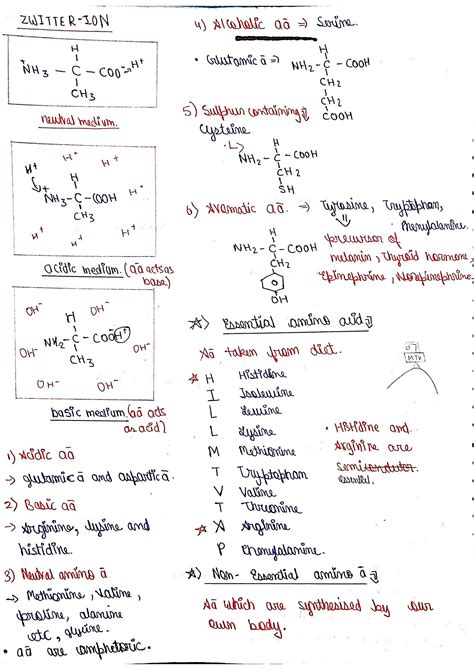 ZWITTER-ION
H
NH3 - C - COO⁻ H⁺
CH3
neutral medium.
H⁺ H⁺ H⁺
H
NH3 - C - COOH H⁺
CH3
H⁺ H⁺ H⁺
acidic medium. (aā acts as
base)
OH⁻ OH⁻
H
OH⁻ NH2 - C - COO⁻ H⁺
CH3
OH⁻ OH⁻ OH⁻
basic medium (aā acts
as acid)
1) Acidic aā
→ glutamic ā and aspartic ā.
2) Basic aā
→ Arginine, lysine and
histidine.
3) Neutral amino ā
→ Methionine, Valine,
proline, alanine
etc, glycine.
• aā are amphoteric.
4) Alcoholic aā ⇒ Serine.
• Glutamic ā ⇒
H
NH2 - C - COOH
CH2
CH2
COOH
5) Sulphur containing
Cysteine
H
NH2 - C - COOH
CH2
SH
6) Aromatic aā. ⇒ Tyrosine, Tryptophan,
Phenylalanine.
H
NH2 - C - COOH
CH2
OH
precursor of
melanin, Thyroid hormone,
Epinephrine, Norepinephrine.
☆) Essential amino acid
Aā taken from diet.
☆ H Histidine
I Isoleucine
L Leucine
L Lysine
M Methionine
T Tryptophan
V Valine
T Threonine
☆ A Arginine
P Phenylalanine.
• Histidine and
Arginine are
Semiconductor
essential.
☆) Non-Essential amino ā
Aā which are synthesised by our
own body.